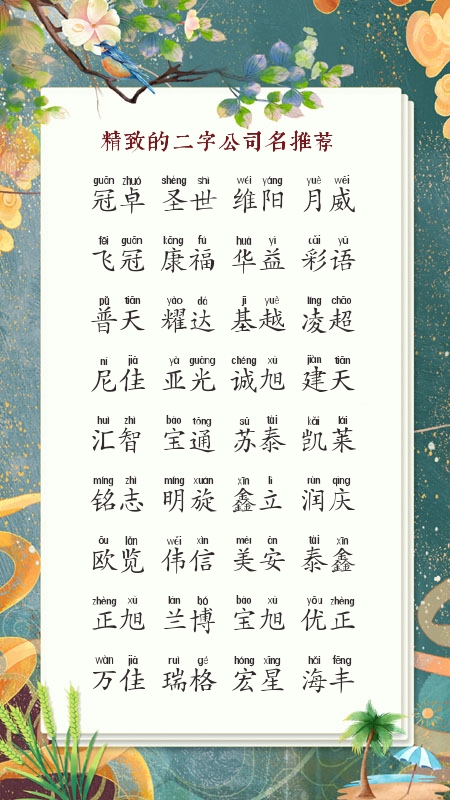 精致的二字公司名推荐
guān zhuó shèng shì wéi yáng yuè wēi
冠卓 圣世 维阳 月威
fēi guān kāng fú huá yì cǎi yǔ
飞冠 康福 华益 彩语
pǔ tiān yào dá jī yuè líng chāo
普天 耀达 基越 凌超
ní jiā yà guāng chéng xù jiàn tiān
尼佳 亚光 诚旭 建天
huì zhì bǎo tōng sū tài kǎi lái
汇智 宝通 苏泰 凯莱
míng zhì míng xuán xīn lì rùn qìng
铭志 明旋 鑫立 润庆
ōu lǎn wěi xìn měi ān tài xīn
欧览 伟信 美安 泰鑫
zhèng xù lán bó bǎo xù yōu zhèng
正旭 兰博 宝旭 优正
wàn jiā ruì gé hóng xīng hǎi fēng
万佳 瑞格 宏星 海丰